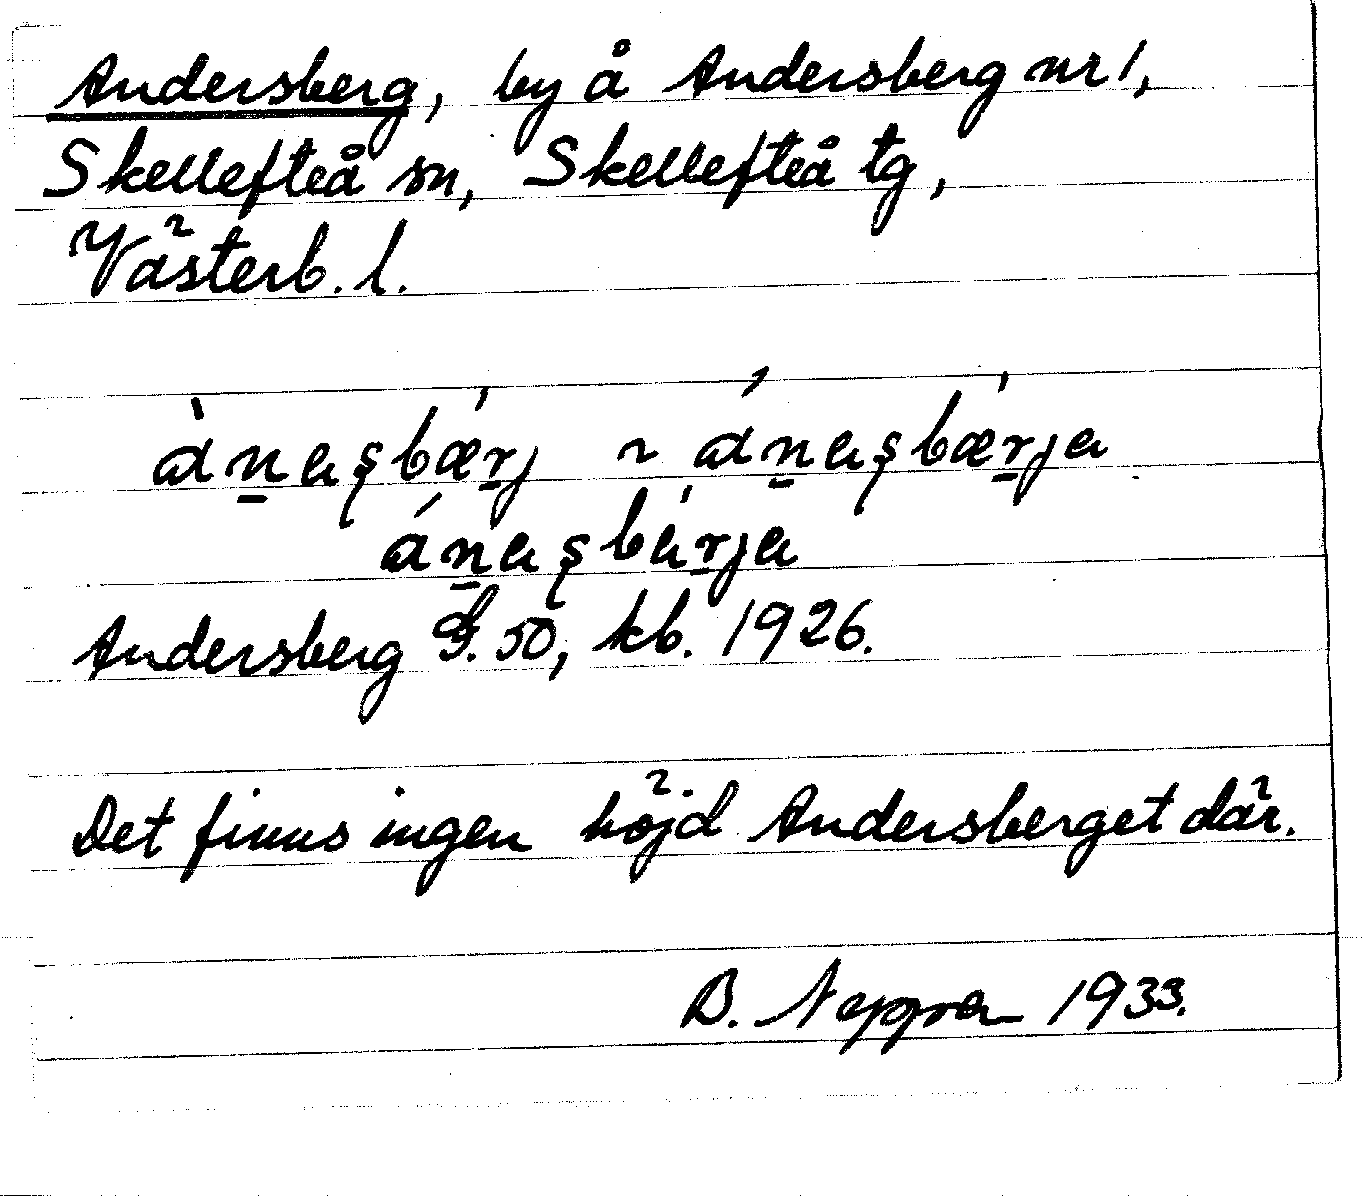 Andersberg, by å Andersberg nr 1,
Skellefteå sn, Skellefteå tg,
Västerb. l.
àn̲aʂbǽr̲j ~ án̲aʂbǽr̲ja
án̲aʂbár̲ja
Andersberg G. 50, kb. 1926.
Det finns ingen höjd Andersberget där.
B. 1933.